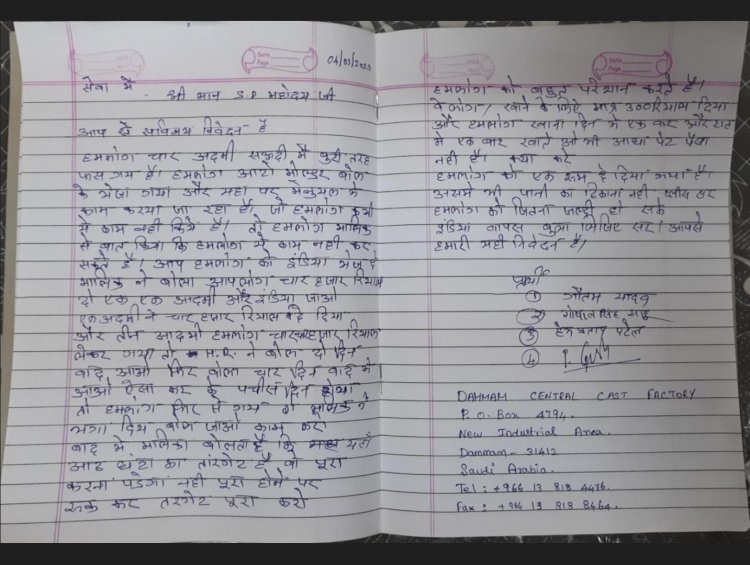 Date
Page
04/03/2023
सेवा में
श्री मान S.P महोदय जी
आप से सविनय निवेदन है
हमलोग चार अदमी सऊदी में बुरी तरह
फस गय है। हमलोग आटो मोल्डर बोल
के भेजा गया और यहा पर मेनुयल मे
काम करया जा रहा है। जो हमलोग कभी
से काम नही किये है। तो हमलोग मालिक
से बात किया कि हमलोग ये काम नही कर
सकते है। आप हमलोग को इंडिया भेज दे
मालिक ने बोला आपलोग चार हजार रियाल
दो एक एक आदमी और इंडिया जाओ
एक अदमी ने चार हजार रियाल दे दिया
और तीन आदमी हमलोग चार चार हजार रियाल
लेकर गया तो H.R. ने बोला दो दिन
बाद आओ फिर बोला चार दिन बाद में
आओ ऐसा कर के पचीस दिन होगया
तो हमलोग फिर से गय तो मालिक ने
भगा दिया बोल जाओ काम करो
बाद मे मालिक बोलता है कि यहाँ
आठ घंटा का तारगेट है वो पूरा
करना पडेगा नही पूरा होने पर
रुक कर तारगेट पूरा करो
Date
Page
हमलोग को बहुत परेशान करते है।
वे लोग खाने के लिए मात्र 300 रियाल दिया
और हमलोग खाना दिन मे एक बार और रात
मे एक बार खाते है ओ भी आधा पेट पैसा
नही है। क्या करे
हमलोग को एक रूम दे दिया गया है।
उसमे भी पानी का ठिकाना नही, प्लीज सर
हमलोग को जितना जल्दी हो सके
इंडिया वापस बुला लिजिए सर। आपसे
हमारी यही निवेदन है।
प्रार्थी
① गौतम यादव
② गोपाल
③ हेमबाबु पटेल
④
DAMMAM CENTRAL CAST FACTORY
P.O. Box 4794.
New Industrial Area.
Dammam - 31412
Saudi Arabia.
Tel : +966 13 818 4476.
Fax : +966 13 818 8464.